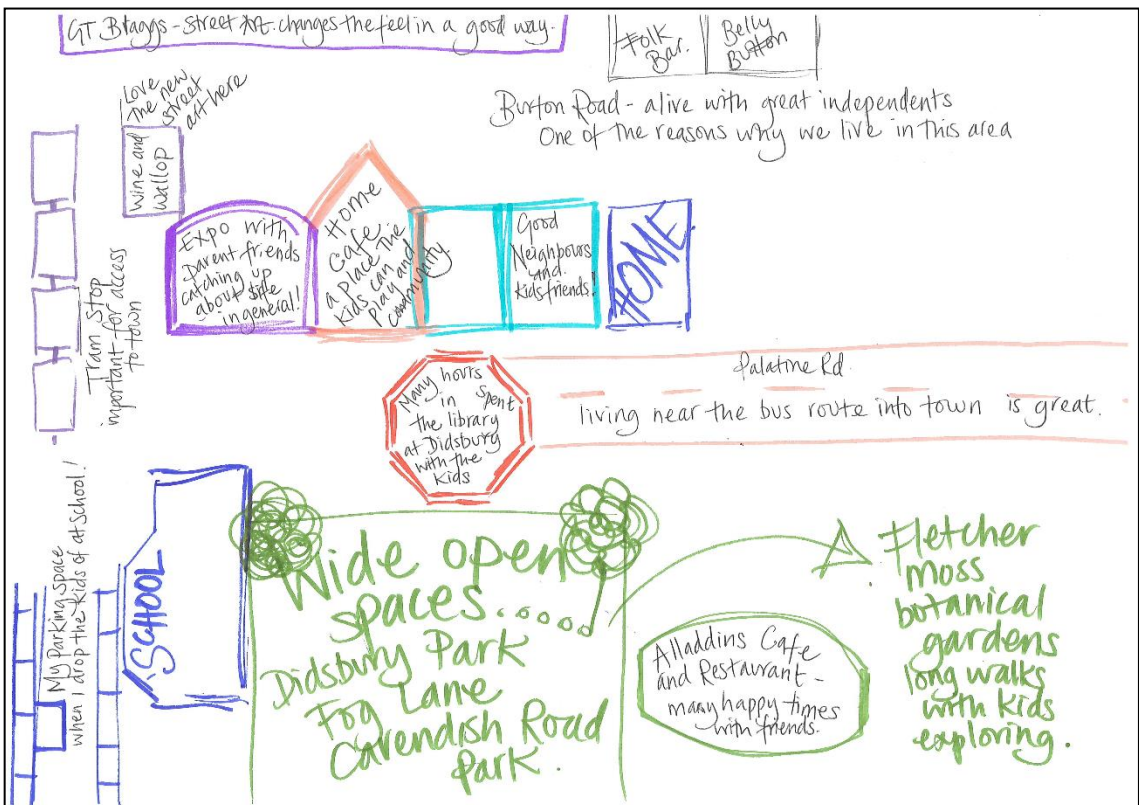 GT Blaggs - Street Art. changes the feel in a good way.
Folk
Bar.
Belly
Button
Burton Road - alive with great independents
One of the reasons why we live in this area
Love
The new
street
art here
Wine and
Wallop
Expo with
parent friends
catching up
about side
in general!
Home
Cafe
a place The
Kids can
Play and
community
Good
Neighbours
and
Kids friends!
HOME
Tram Stop
important for access
to town
Palatine Rd
living near the bus route into town is great.
Many hours
spent
in
the library
at Didsbury
with the
Kids
My Parking Space
when I drop the kids of at School!
SCHOOL
Wide open
spaces.....
Didsbury Park
Fog Lane
Cavendish Road
Park.
Alladdins Cafe
and Restaurant -
many happy times
with friends.
Fletcher
moss
botanical
gardens
long walks
with kids
exploring.